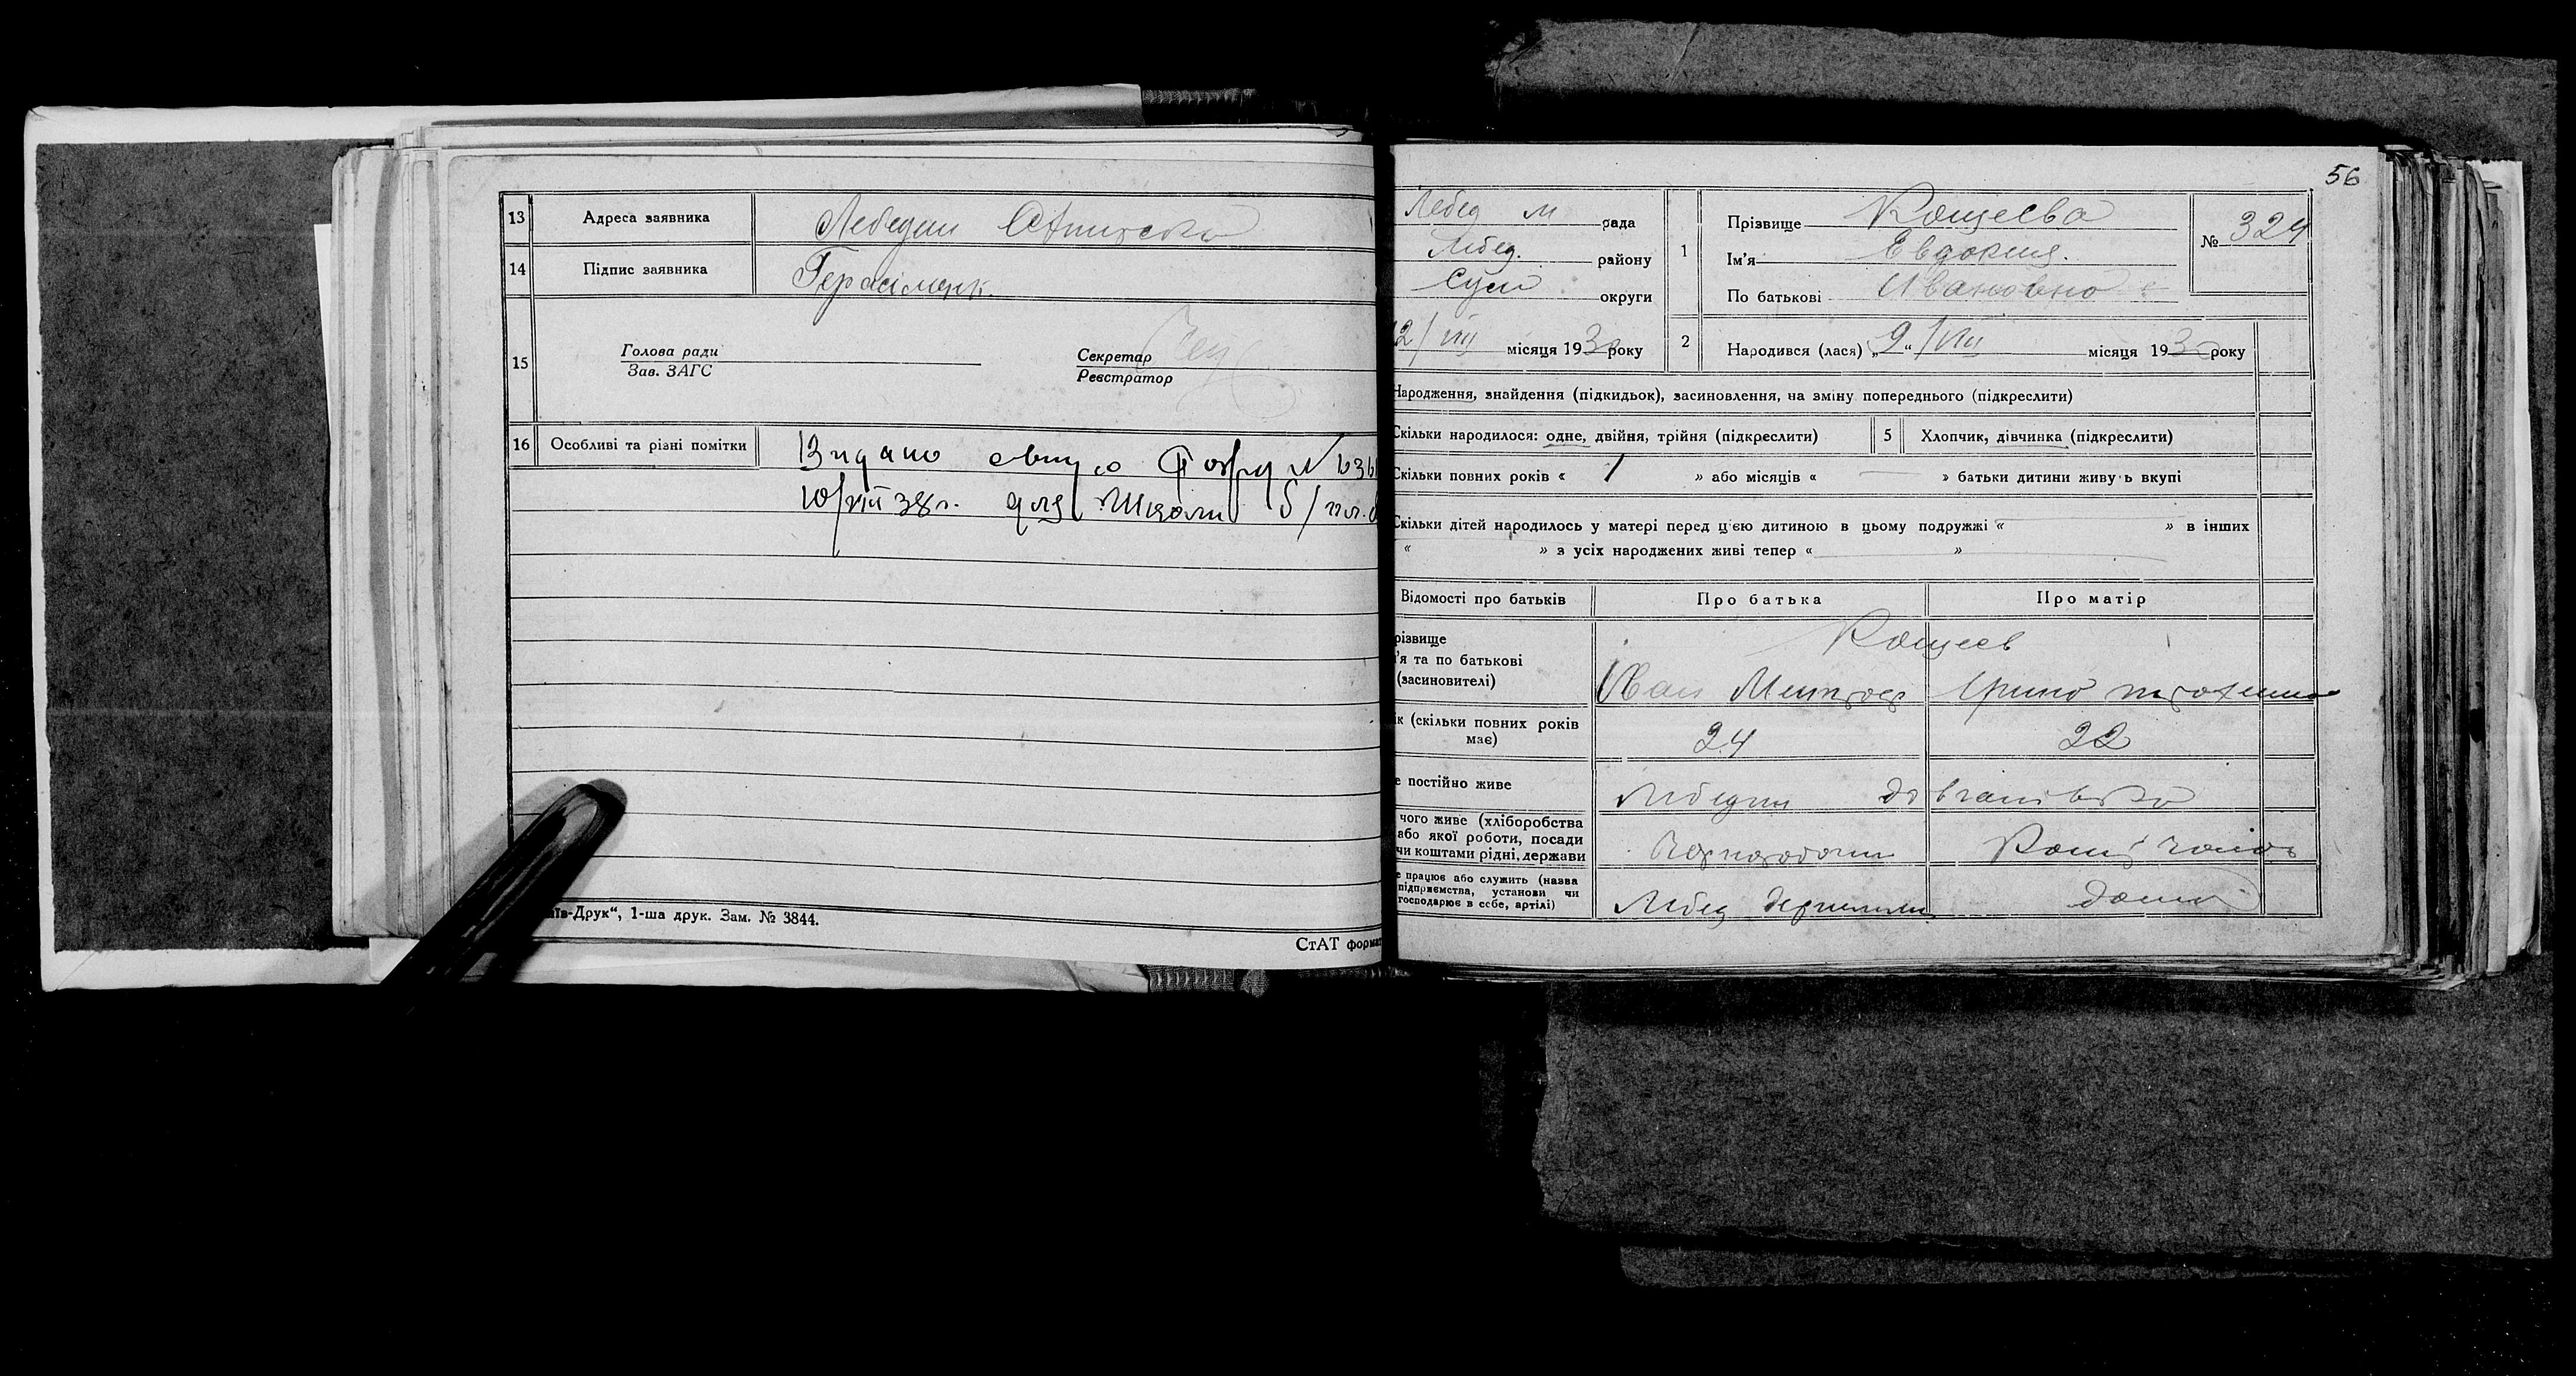 13 Адреса заявника Лебедин
14 Підпис заявника Герасіменк.
15 Голова ради
Зав. ЗАГС
Секретар
Реєстратор
16 Особливі та різні помітки Видано
10/VIII 38 г. для Школи б/пл.
"Київ-Друк“, 1-ша друк. Зам. № 3844.
СтАТ формат
56
Лебед м рада
Лебед. району
Сум округи
2/VIII місяця 1930 року
1 Прізвище Кощеєва
Ім'я Евдокия.
По батькові Ивановна
№ 324
2 Народився (лася) „9“ /VIII місяця 1930 року
Народження, знайдення (підкидьок), засиновлення, на зміну попереднього (підкреслити)
Скільки народилося: одне, двійня, трійня (підкреслити) 5 Хлопчик, дівчинка (підкреслити)
Скільки повних років « 1 » або місяців « — » батьки дитини живуть вкупі
Скільки дітей народилось у матері перед цією дитиною в цьому подружжі « » в інших
« » з усіх народжених живі тепер « »
Відомості про батьків Про батька Про матір
різвище Кощеев
'я та по батькові
(засиновителі) Иван Ирина
ік (скільки повних років
має) 24 22
е постійно живе Лебедин
чого живе (хліборобства
або якої роботи, посади
чи коштами рідні, держави
е працює або служить (назва
підприємства, установи чи
господарює в себе, артілі) Лебед дома